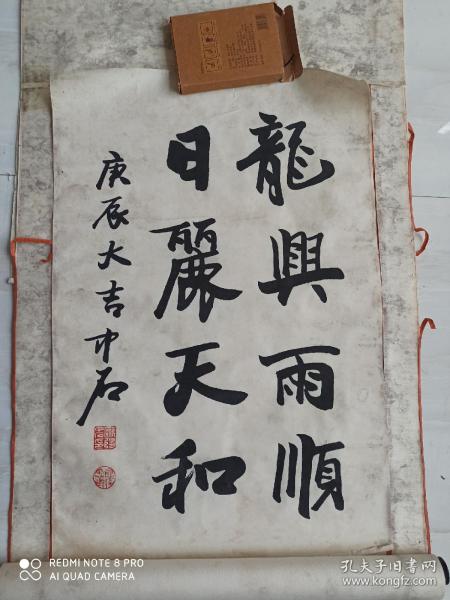 龍興雨順
日麗天和
庚辰大吉中石
REDMI NOTE 8 PRO
AI QUAD CAMERA
孔夫子旧书网
www.kongfz.com